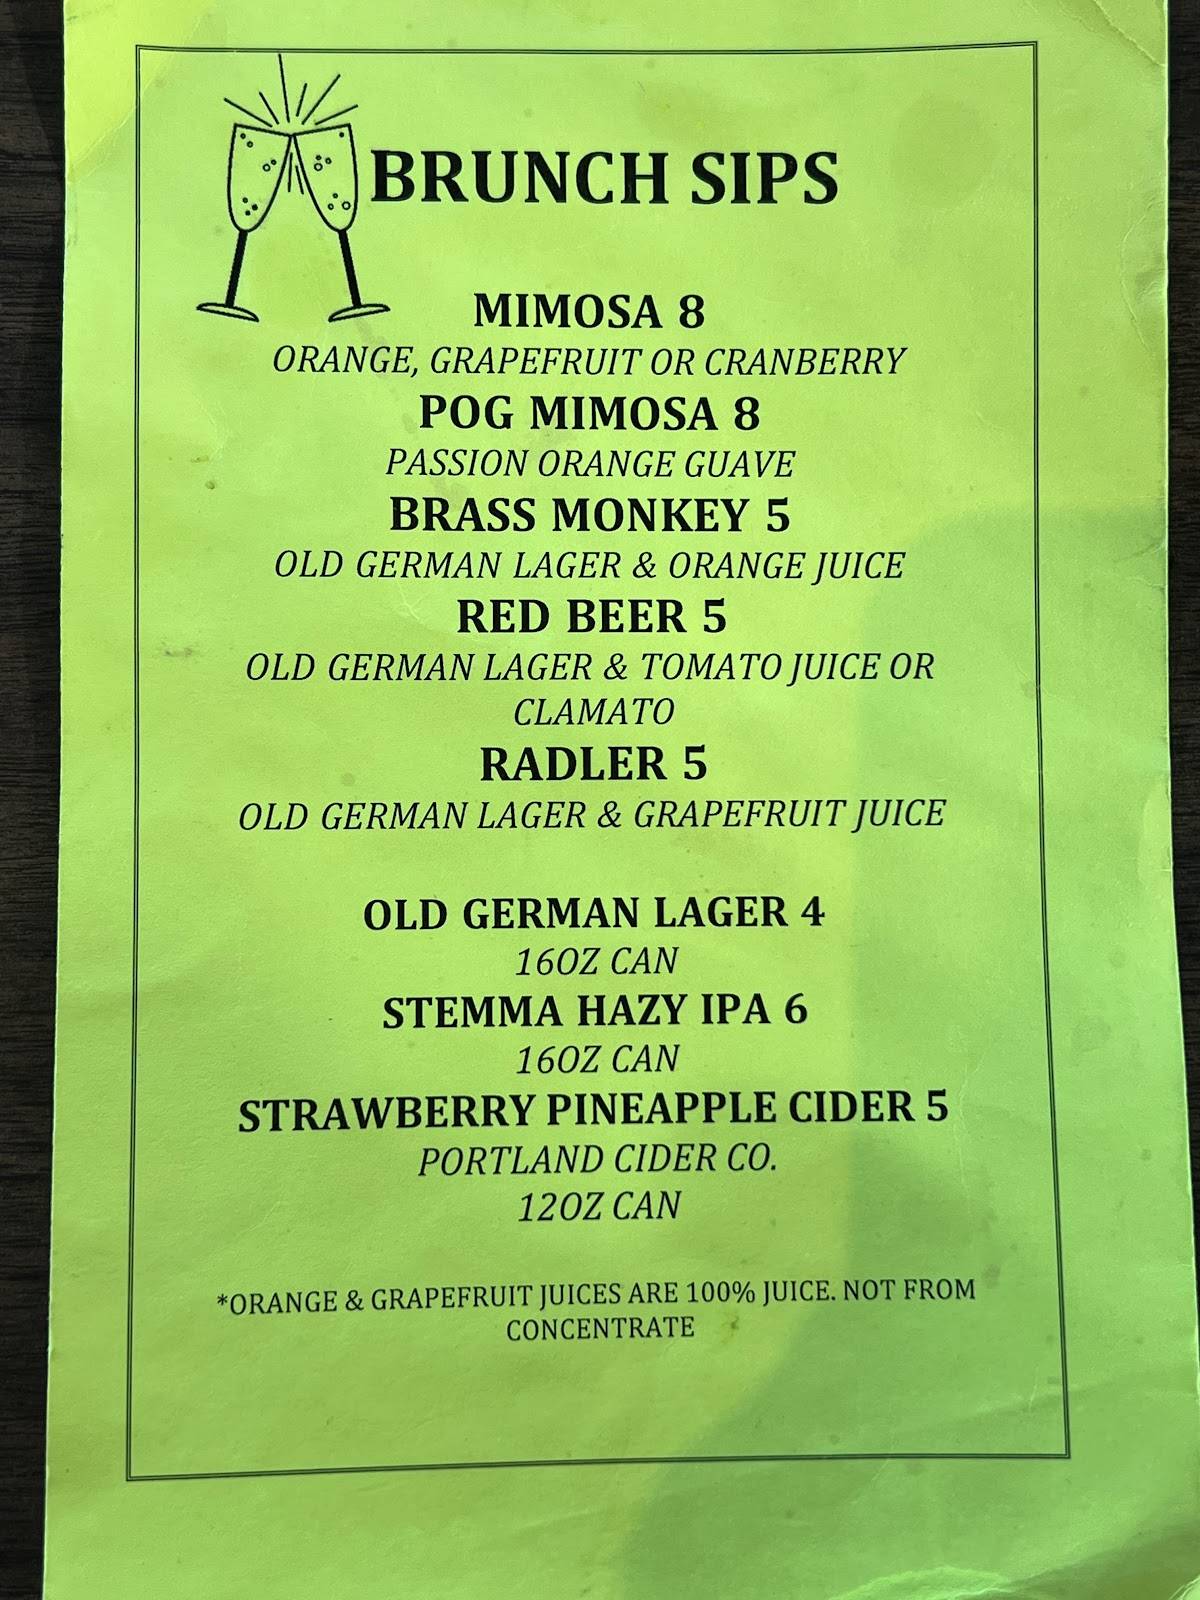 BRUNCH SIPS
MIMOSA 8
ORANGE, GRAPEFRUIT OR CRANBERRY
POG MIMOSA 8
PASSION ORANGE GUAVE
BRASS MONKEY 5
OLD GERMAN LAGER & ORANGE JUICE
RED BEER 5
OLD GERMAN LAGER & TOMATO JUICE OR
CLAMATO
RADLER 5
OLD GERMAN LAGER & GRAPEFRUIT JUICE
OLD GERMAN LAGER 4
16OZ CAN
STEMMA HAZY IPA 6
16OZ CAN
STRAWBERRY PINEAPPLE CIDER 5
PORTLAND CIDER CO.
12OZ CAN
*ORANGE & GRAPEFRUIT JUICES ARE 100% JUICE. NOT FROM
CONCENTRATE